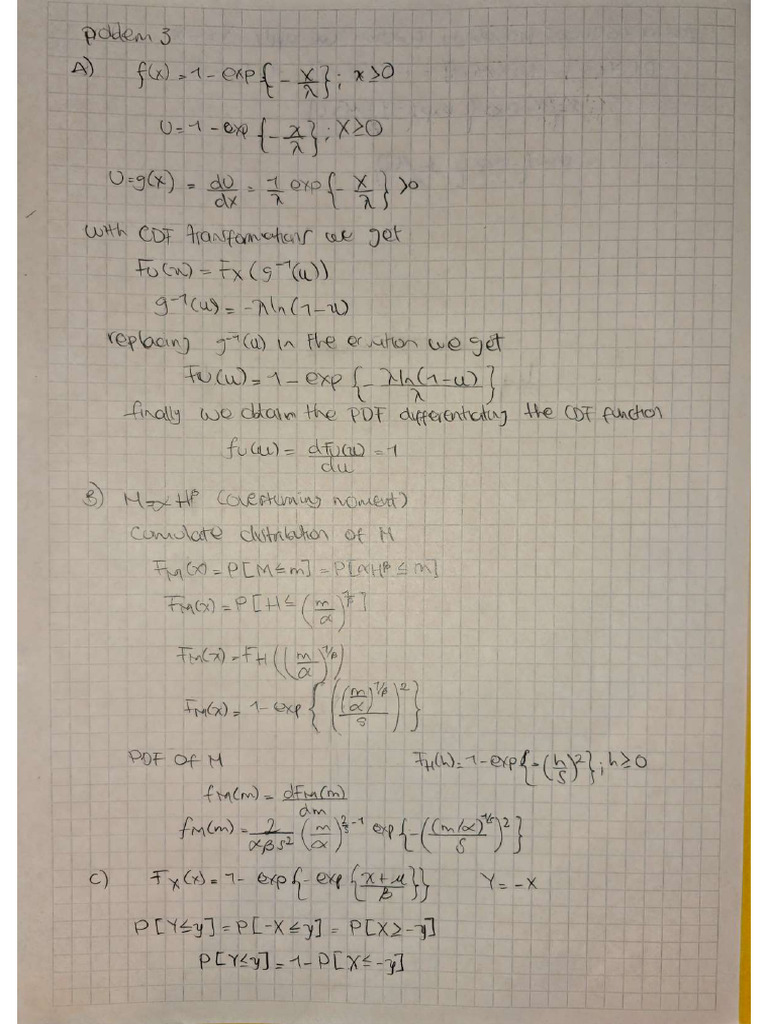 problem 3
A) f(x) = 1 - exp{-x/λ}; x≥0
U = 1 - exp{-x/λ}; X≥0
U=g(x) = dU/dx = 1/λ exp{-x/λ} >0
with CDF transformations we get
FU(u) = FX(g⁻¹(u))
g⁻¹(u) = -λ ln(1-u)
replacing g⁻¹(u) in the equation we get
FU(u) = 1 - exp{-λ ln(1-u)/λ}
finally we obtain the PDF differentiating the CDF function
fU(u) = dFU(u)/du = 1
B) M=αHᵝ (overturning moment)
Cumulate distribution of M
FM(x) = P[M≤m] = P[αHᵝ≤m]
FM(x) = P[H≤(m/α)^1/β]
FM(x) = FH((m/α)^1/β)
FM(x) = 1 - exp{(((m/α)^1/β)/s)²}
PDF of M FH(h) = 1 - exp{-(h/s)²}; h≥0
fM(m) = dFM(m)/dm
fM(m) = 2/(αβs²) (m/α)^(2/β - 1) exp{-(((m/α)^1/β)/s)²}
C) FX(x) = 1 - exp{-exp{(x+μ)/β}} Y = -X
P[Y≤y] = P[-X≤y] = P[X≥-y]
P[Y≤y] = 1 - P[X≤-y]